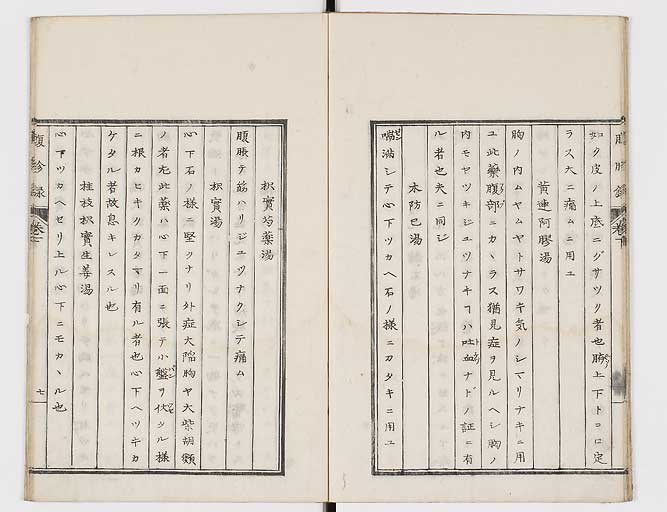 如ク皮ノ上底ニグサツク者也 上下トコロ定
ラス大ニ痛ムニ用ユ
黄連阿膠湯
胸ノ内ムヤムヤトサワキ気ノシマリナキニ用
ユ此藥腹部ニカヽラス猶見症ヲ見ルヘシ胸ノ
内モヤツキジユツナキ ハ吐血ナドノ証ニ有
ル者也夫ニ同ジ
木防已湯
喘満シテ心下ツカヘ石ノ様ニカタキニ用ユ
枳實芍薬湯
腹脹テ筋ハリジユツナクシテ痛ム
枳實湯
心下石ノ様ニ堅クナリ外症大陥胸ヤ大柴胡類
ノ者尤此薬ハ心下一面ニ張テ小盤ヲ伏タル様
ニ根カヒキクカタマリ有ル者也心下ヘツキカ
ケタル者故息キレスル也
桂枝枳實生姜湯
心下ツカヘセリ上ル心下ニモカヽル也
腹診録 巻下
七